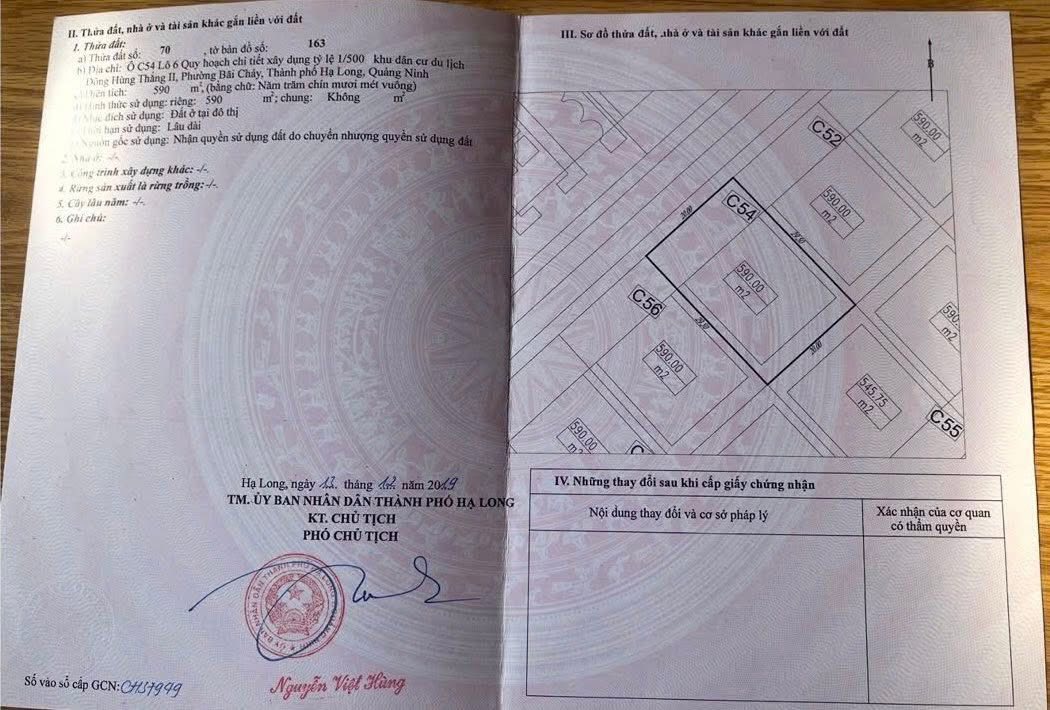 II. Thửa đất, nhà ở và tài sản khác gắn liền với đất
1. Thửa đất:
a) Thửa đất số: 70 , tờ bản đồ số: 163
b) Địa chỉ: Ô C54 Lô 6 Quy hoạch chi tiết xây dựng tỷ lệ 1/500 khu dân cư du lịch
Đông Hùng Thắng II, Phường Bãi Cháy, Thành phố Hạ Long, Quảng Ninh
tích: 590 m², (bằng chữ: Năm trăm chín mươi mét vuông)
thức sử dụng: riêng: 590 m²; chung: Không m²
đích sử dụng: Đất ở tại đô thị
hạn sử dụng: Lâu dài
gốc sử dụng: Nhận quyền sử dụng đất do chuyển nhượng quyền sử dụng đất
2. Nhà ở: -/-
3. Công trình xây dựng khác: -/-.
4. Rừng sản xuất là rừng trồng: -/-.
5. Cây lâu năm: -/-.
6. Ghi chú:
-/-
Hạ Long, ngày 13 tháng 12 năm 2019
TM. ỦY BAN NHÂN DÂN THÀNH PHỐ HẠ LONG
KT. CHỦ TỊCH
PHÓ CHỦ TỊCH
Nguyễn Việt Hùng
Số vào sổ cấp GCN: CH57999
III. Sơ đồ thửa đất, nhà ở và tài sản khác gắn liền với đất
B
C52
590.00
m2
590.00
m2
C54
20.00
29.50
590.00
m2
590
m2
C56
29.50
20.00
590.00
m2
545.75
m2
C55
590.00
m2
IV. Những thay đổi sau khi cấp giấy chứng nhận
Nội dung thay đổi và cơ sở pháp lý
Xác nhận của cơ quan
có thẩm quyền